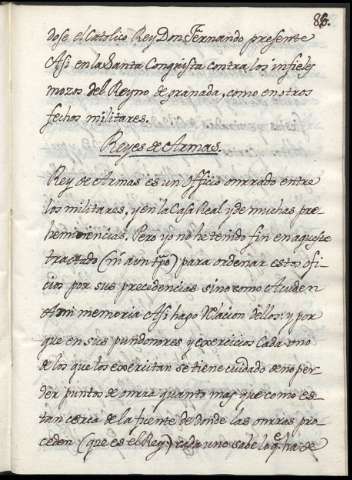 86.
dose el Catolico Rey Don Fernando presente
Asi en la Santa Conquista contra los infieles
moros del Reyno de granada, como en otros
fechos militares.
Reyes de Armas.
Rey de Armas es un officio onrrado entre
los militares, y en la Casa Real y de muchas pre
heminencias. Pero yo no he tenido fin en aqueste
tractado (ni aun tpo) para ordenar estos ofi
cios por sus precedencias sino como Acuden
A mi memoria Asi hago Relacion dellos: y por
que en sus pundonores y exercicios Cada uno
de los que los exercitan se tiene cuidado de no per
der puntos de onrra quanto mas que como es
tan cerca de la fuente de donde las onrras pro
ceden (que es el Rey) cada uno sabe lo q. ha de